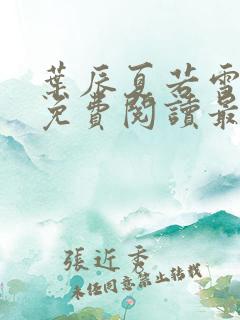 葉辰夏若雪
免費閱讀最
張近秀
未經同意禁止轉載